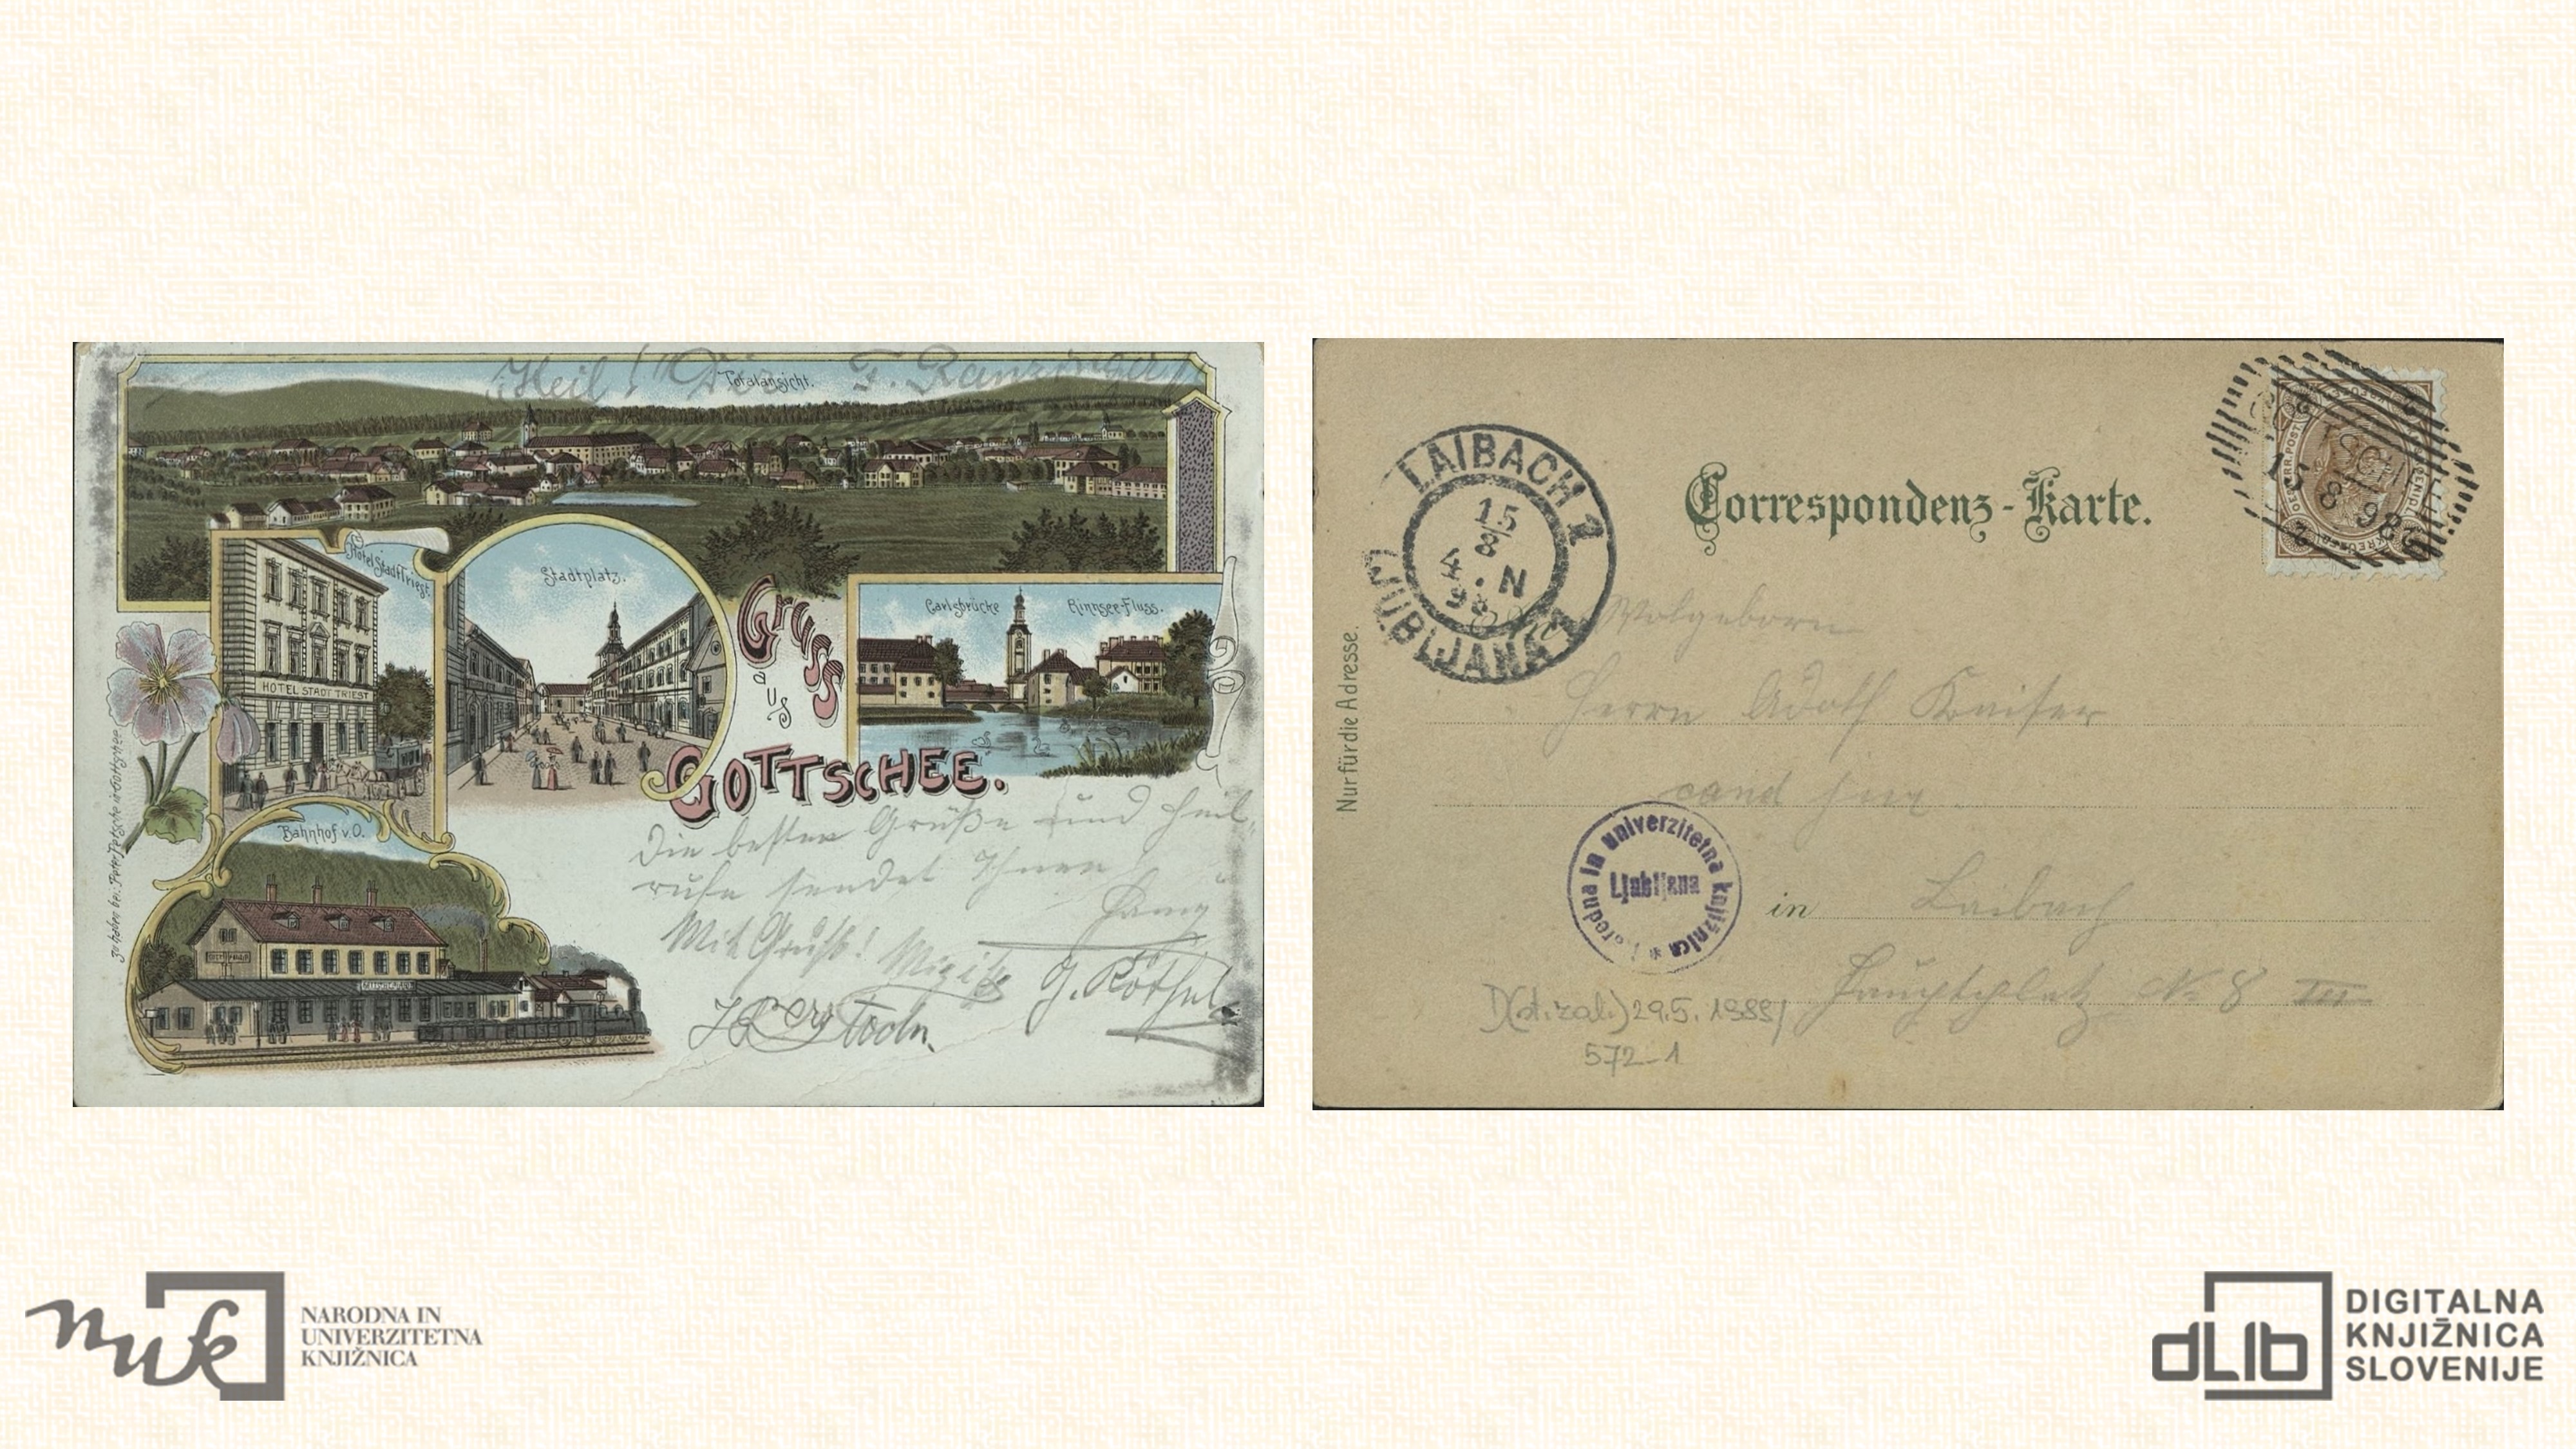 Heil! F. Ranzinger
Totalansicht.
Hotel Stadt Triest.
HOTEL STADT TRIEST
Stadtplatz.
Gruss
aus
GOTTSCHEE.
Carlsbrücke Rinnsee-Fluss.
Bahnhof v. O.
Zu haben bei: Peter Petsche in Gottschee.
Die besten Grüße und Heil-
rufe sendet Ihnen
Mit Gruß! Mizi
J. Röthel
LAIBACH 1
15
8
N
LJUBLJANA 1
Correspondenz-Karte.
Nur für die Adresse.
15 8 98
Wolgeborn
Herrn Adolf Kaiser
cand jur
in Laibach
Hauptplatz No 8 III
Narodna in univerzitetna knjižnica *
Ljubljana
D(st.zal.) 29.5.1989/
572-1
nuk
NARODNA IN
UNIVERZITETNA
KNJIŽNICA
dLib
DIGITALNA
KNJIŽNICA
SLOVENIJE